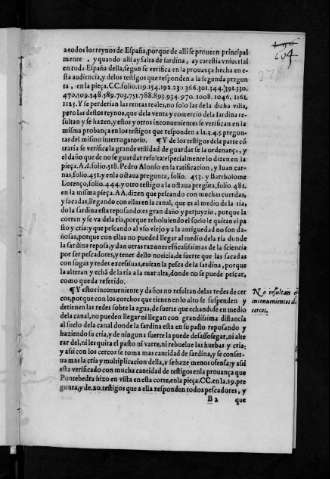 a todos los reynos de España, porque de alli se prouecn principal
mente. y quando alli ay falta de sardina, ay carestia vniuersal
en toda España della, segun se verifica en la prouança hecha en
esta audiencia, y de los testigos que responden a la segunda pregun
ta, en la pieça. CC. folio. 119. 154. 192. 230. 366. 301. 344. 392. 330.
470. 509. 548. 589. 703. 751. 788. 891. 934. 970. 1008. 1046. 1068.
1125. Y se perderian las rentas reales, no solo las de la dicha villa,
pero las destos reynos, que de la venta y comercio de la sardina re-
sultan y se hazen, y estos y otros inconuenientes se verifican en la
misma probança en los testigos que responden a la. 3. 4. 5. pregun-
tas del mismo interrogatorio. ¶ Y de los testigos de la parte cō
traria se verifica la grande vtilidad de guardar se la ordenança, y
el daño que de no se guardar resulta: especialmente lo dizen en la
pieça. A A. folio. 518. Pedro Alonso en la ratificacion, y Iuan car
nas, folio. 452. y en la octaua pregunta, folio. 453. y Bartholome
Lorenço, folio. 444. y otro testigo a la octaua pregūta, folio. 481.
en la misma pieça. AA. dizen que pescando con muchas cuerdas,
y sacadas, llegando con ellas en la canal, que es el medio de la ria
do la sardina esta reposando es gran daño y perjuyzio, porque la
corren y no la dexan reposar, porque reboluiendo el suelo quitan el pa
sto y cria: y que pescando al vso viejo y a la antigueda d no son da-
ñosas, porque con ellas no pueden llegar al medio de la ria donde
la sardina reposa, y dan otras razones efficacissimas de su sciencia
por ser pescadores, y tener desto noticia, de suerte que las sacadas
con sogas y redes excessiuas, quitan la pesca de la sardina, porque
la alteran y echā de la ria a la mar alta, donde no se puede pescar,
como queda referido.
¶ Y estos inconueniente y daños no resultan delas redes de cer
cos, porque con los corchos que tienen en lo alto se suspenden y
detienen las redes sobre la agua, de suerte que echando se en medio
dela canal, no pueden llegar ni llegan con grandissima distancia
al suelo dela canal donde la sardina esta en su pasto reposando y
haziendo su cria, y de ninguna suerte la puede desassossegar, ni alte
rar del, ni les quita el pasto ni varre, ni rebuelue las hueuas y cria:
y assi con los cercos se toma mas cantidad de sardina, y se conser-
ua mas la cria y multiplicacion della, y se haze menos ofensa: y assi
esta verificado con mucha cantidad de testigos en la prouança que
Pontebedra hizo en vista en esta corte, en la pieça. CC. en la. 19. pre
gunta, y de. 20. testigos que a ella responden todos pescadores, y
B 2 que
204
No resultan
inconuenientes de
cercos.